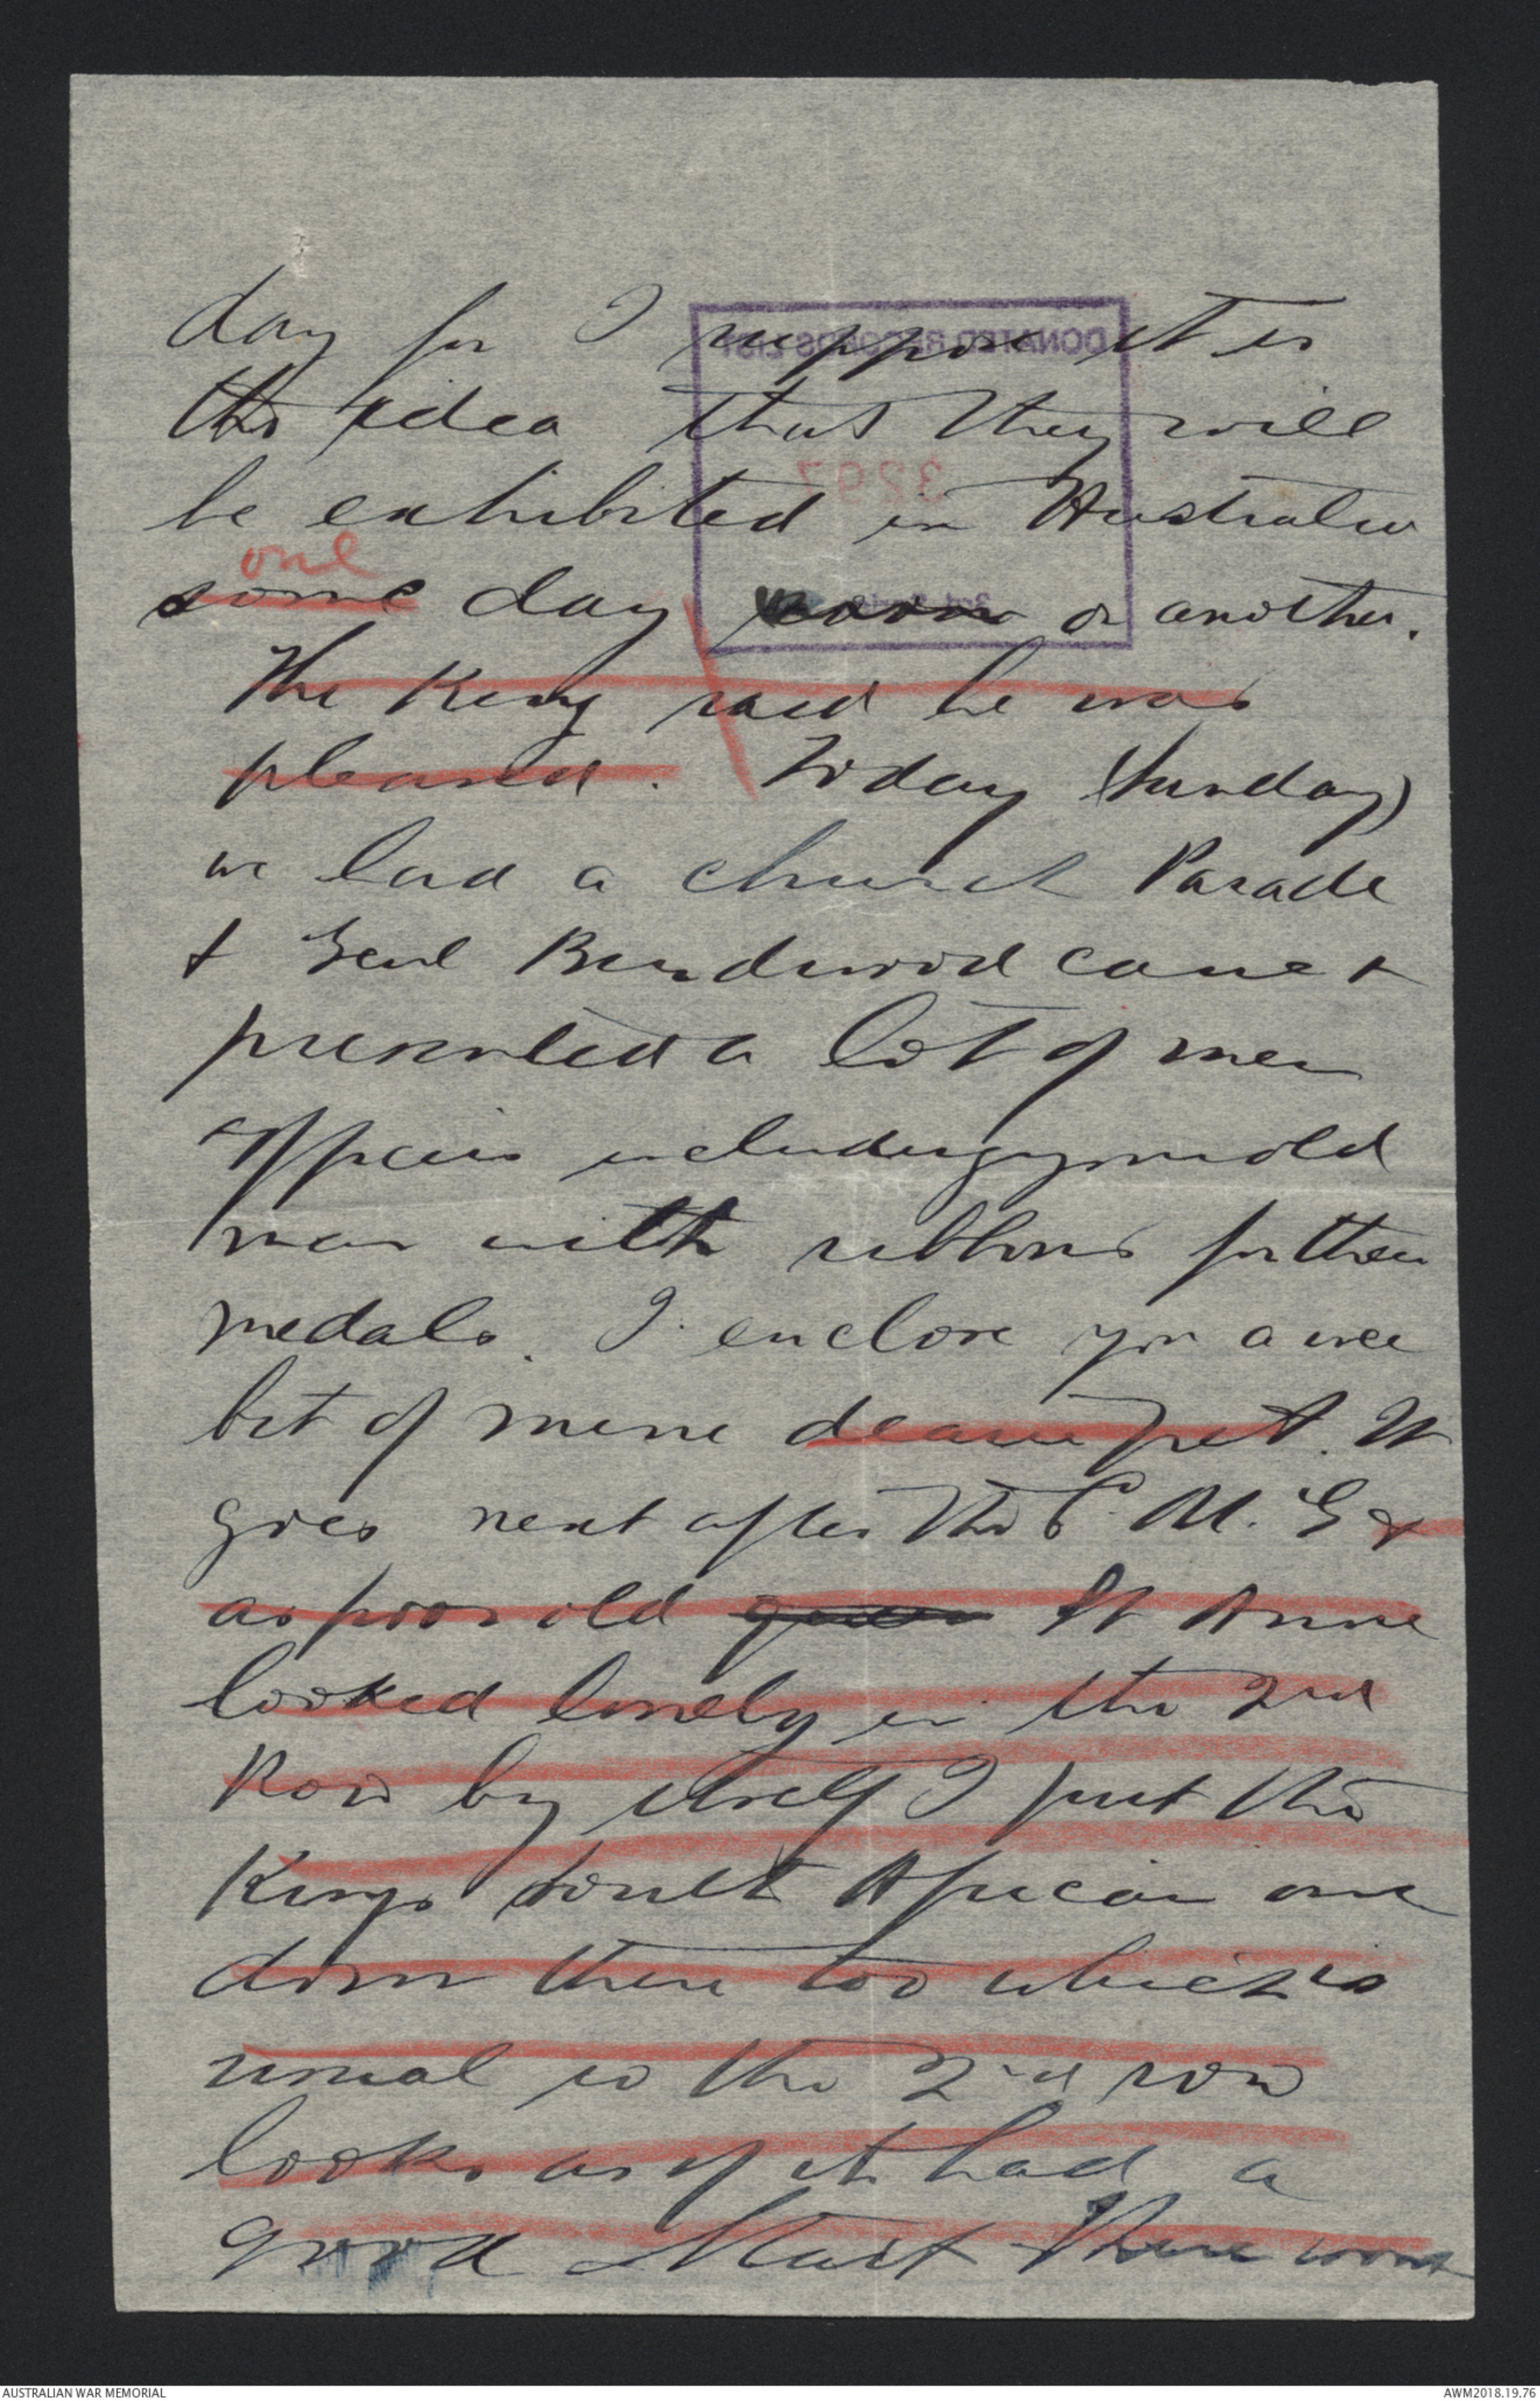 day for I suppose it is
DONATED RECORDS LIST
the idea that they will
3297
be exhibited in Australia
one
some day soon or another.
The King said he was
pleased. Today (Sunday)
we had a church Parade
& Genl Birdwood came &
presented a lot of men
officers including yr old
man with ribbons for their
medals. I enclose you a wee
bit of mine dearie pet. It
goes next after the C. M. G &
as poor old St Anne
looked lonely in the 2nd
Row by itself I put the
Kings South African one
down there too which is
usual so the 2nd row
looks as if it had a
good start There wont
AUSTRALIAN WAR MEMORIAL
AWM2018.19.76